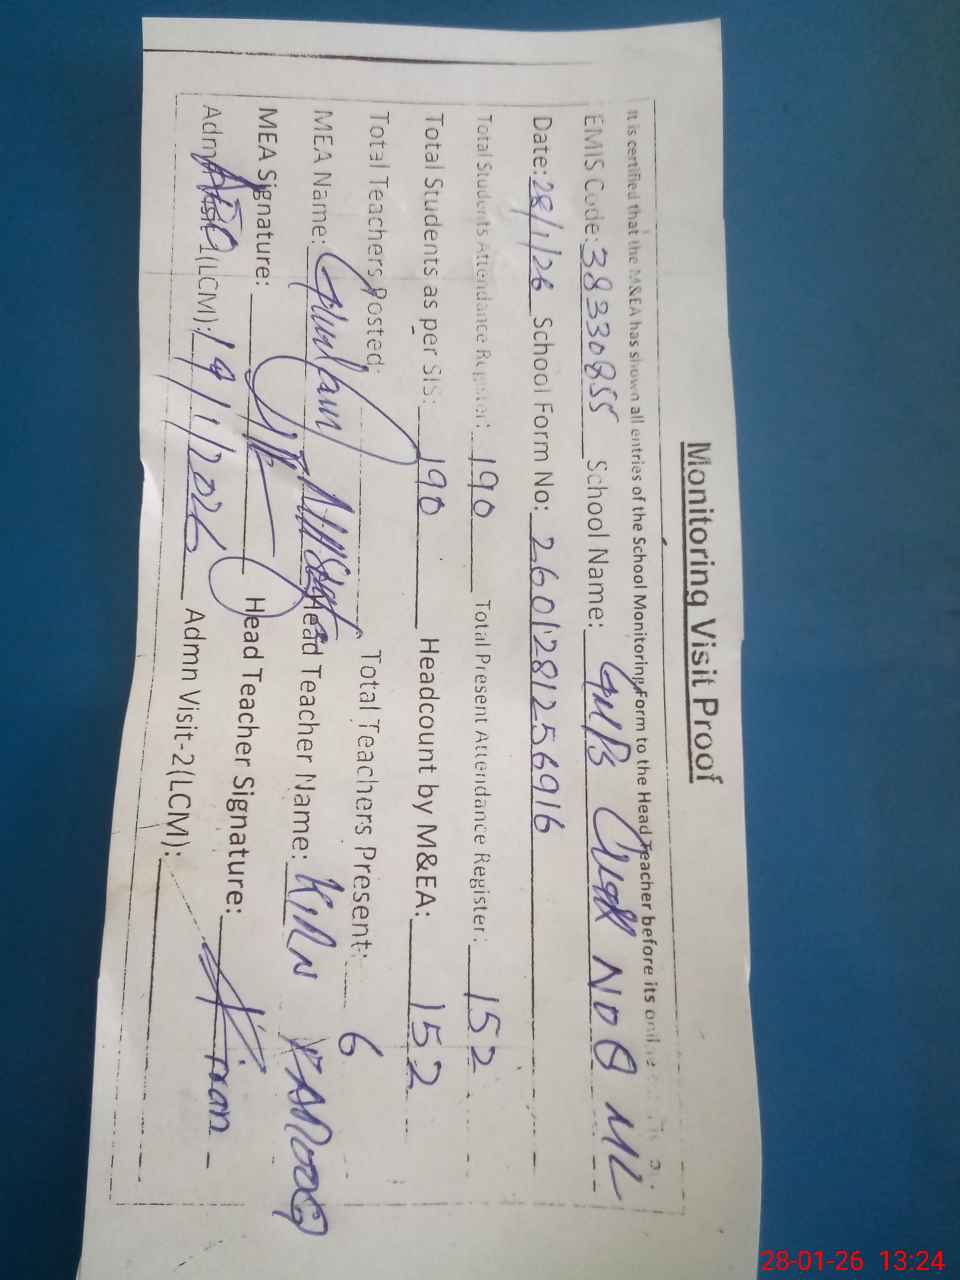 Monitoring Visit Proof
It is certified that the M&EA has shown all entries of the School Monitoring Form to the Head Teacher before its
EMIS Code: 38330855 School Name: GMPS Chak No 8 ML
Date: 28/1/26 School Form No: 2601281256916
Total Students Attendance Register: 190 Total Present Attendance Register: 152
Total Students as per SIS: 190 Headcount by M&EA: 152
Total Teachers Posted: Total Teachers Present: 6
MEA Name: Ghulam Head Teacher Name: KIRN
MEA Signature: Head Teacher Signature: Kiran
(LCM): 19/1/2026 Admn Visit-2(LCM):
28-01-26 13:24